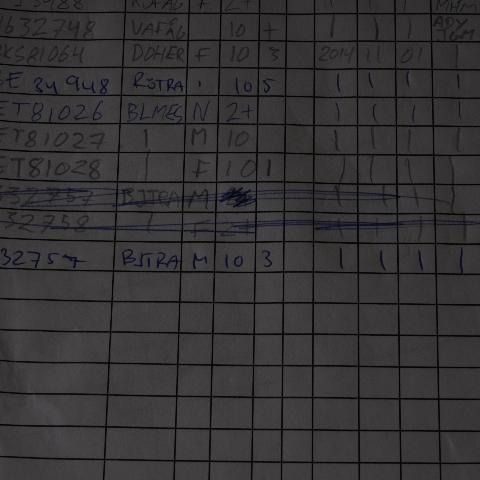 1632748 VAFAG 10 + | | | ADY JGM
KSR1064 DOHER F 10 3 2014 11 01 |
SE 34948 RSTRA · 10 5 | | | |
ET81026 BLMES N 2+ | | | |
ET81027 | M 10 | | | |
ET81028 | F 10 1 | | | |
32757 BJTRA M | | |
32758 | F 2+ | | | |
32757 BSTRA M 10 3 | | | |